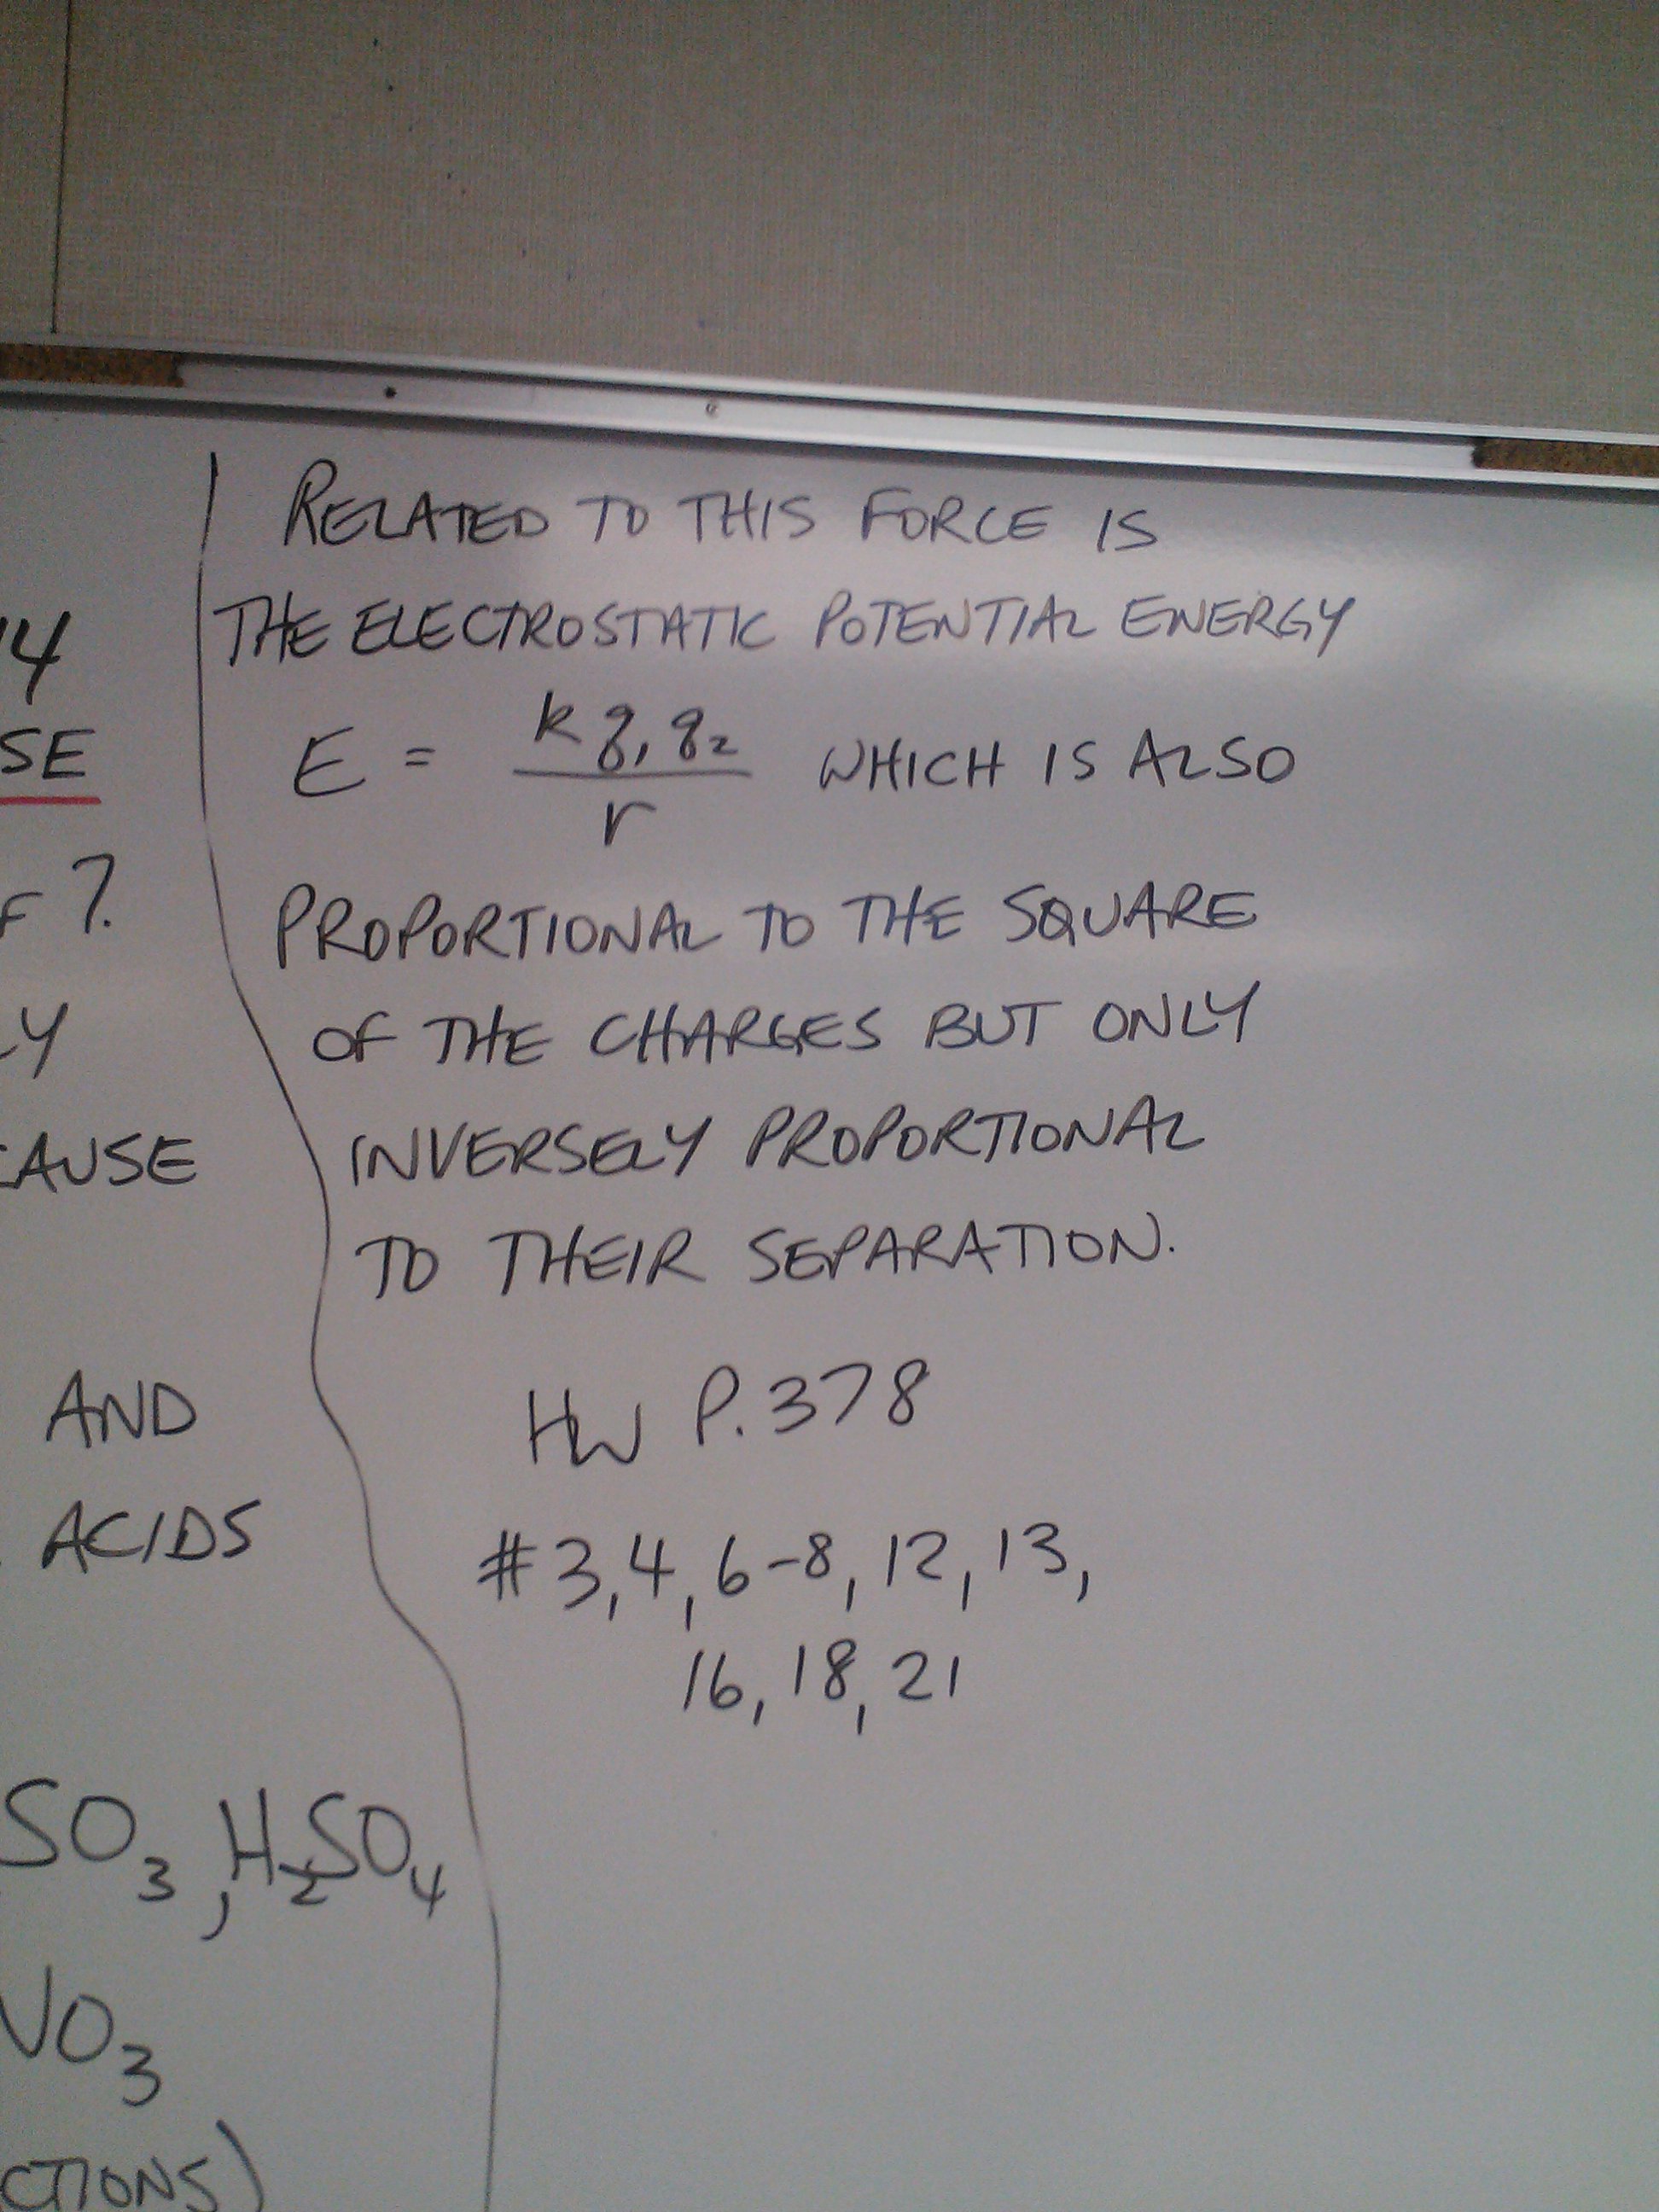 RELATED TO THIS FORCE IS
THE ELECTROSTATIC POTENTIAL ENERGY
E = kq₁q₂ / r WHICH IS ALSO
PROPORTIONAL TO THE SQUARE
OF THE CHARGES BUT ONLY
INVERSELY PROPORTIONAL
TO THEIR SEPARATION.
HW P.378
#3,4,6-8,12,13,
16,18,21
14
SE
F 7.
LY
CAUSE
AND
ACIDS
SO₃,H₂SO₄
NO₃
CTIONS)